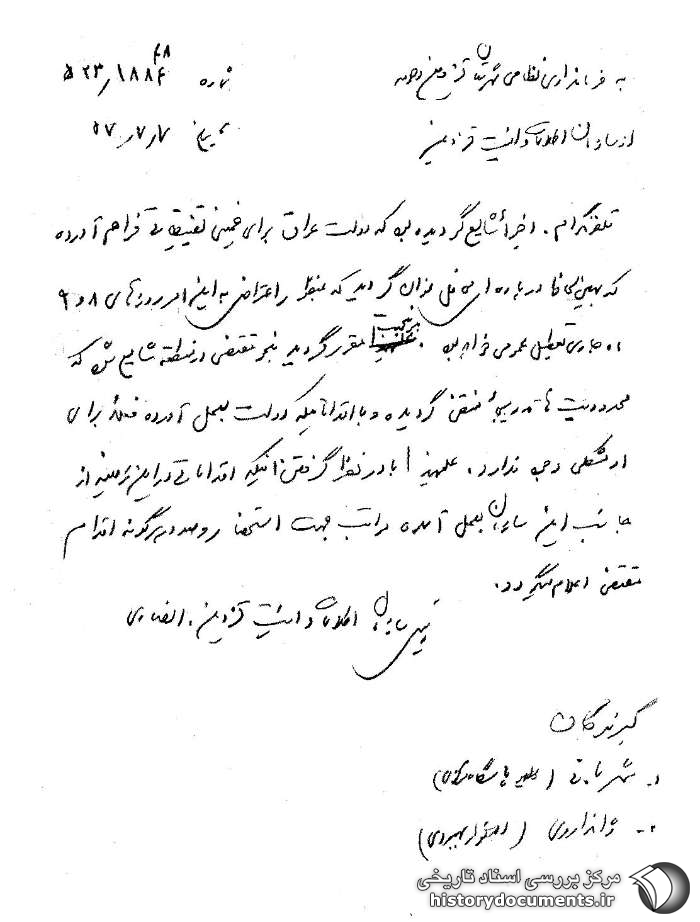 به فرمانداری نظامی شهرستان قزوین و حومه
شماره ۵۲۳/۱۸۸۴ ۴۸
از سازمان اطلاعات و امنیت قزوین
تاریخ ۵۷/۷/۷
تلفنگرام. اخیراً شایع گردیده که دولت عراق برای خمینی تضییقاتی فراهم آورده
که بهمین لحاظ در پاره‌ای محافل عنوان گردید که بمنظور اعتراض به این امر روزهای ۸ و ۹
ماه جاری تعطیل عمومی خواهد بود. مقرر گردید بنحو مقتضی در منطقه شایع شود که
محدودیت‌ها تدریجاً منتفی گردیده و با اقداماتیکه دولت بعمل آورده فعلاً برای
او مشکلی وجود ندارد. علیهذا با در نظر گرفتن اینکه اقداماتی در این زمینه از
جانب این سازمان بعمل آمده مراتب جهت استحضار و صدور هرگونه اقدام
مقتضی اعلام میگردد.
رئیس سازمان اطلاعات و امنیت قزوین. انصاری
گیرندگان
۱- شهربانی
۲- ژاندارمری
مرکز بررسی اسناد تاریخی
historydocuments.ir